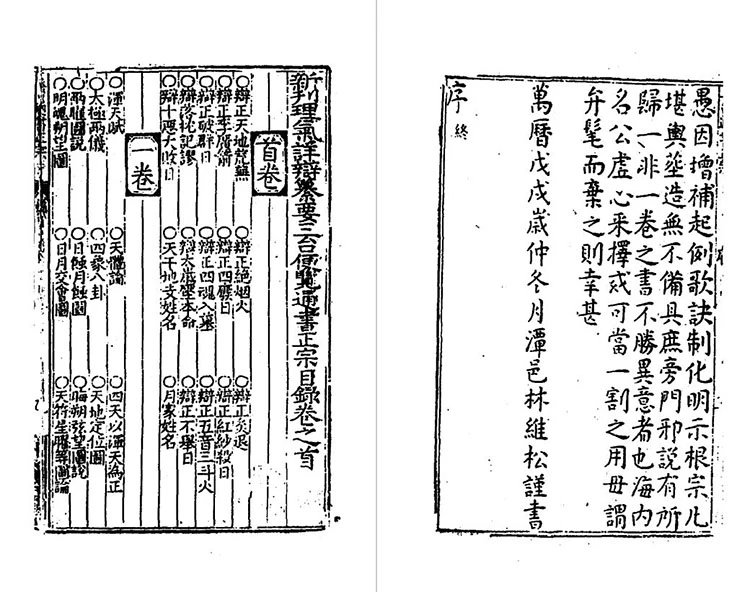 愚因增補起例歌訣制化明示根宗凡
堪輿葬造無不備具庶旁門邪說有所
歸一非一卷之書不勝異意者也海内
名公虛心采擇或可當一割之用毋謂
弁髦而棄之則幸甚
萬曆戊戌歲仲冬月潭邑林維松謹書
序終
新刊理氣詳辯纂要三台便覽通書正宗目錄卷之首
首卷
○辯正天地荒蕪 ○辯正絕烟火 ○辯正炙退
○辯正李廣箭 ○辯正四廢日 ○辯正紅紗殺日
○辯正破群日 ○辯正四魂入墓 ○辯正五音三斗火
○辯落枕記謬 ○辯太歲壓本命 ○辯正不舉日
○辯十惡大敗日 ○天干地支姓名 ○月家姓名
一卷
○渾天賦 ○天體論 ○四天以渾天為正
○太極兩儀 ○四象八卦 ○天地定位圖
○兩曜圖說 ○日蝕月蝕圖 ○晦朔弦望圖說
○明魄朔望圖 ○日月交會圖 ○天符星曜圖論